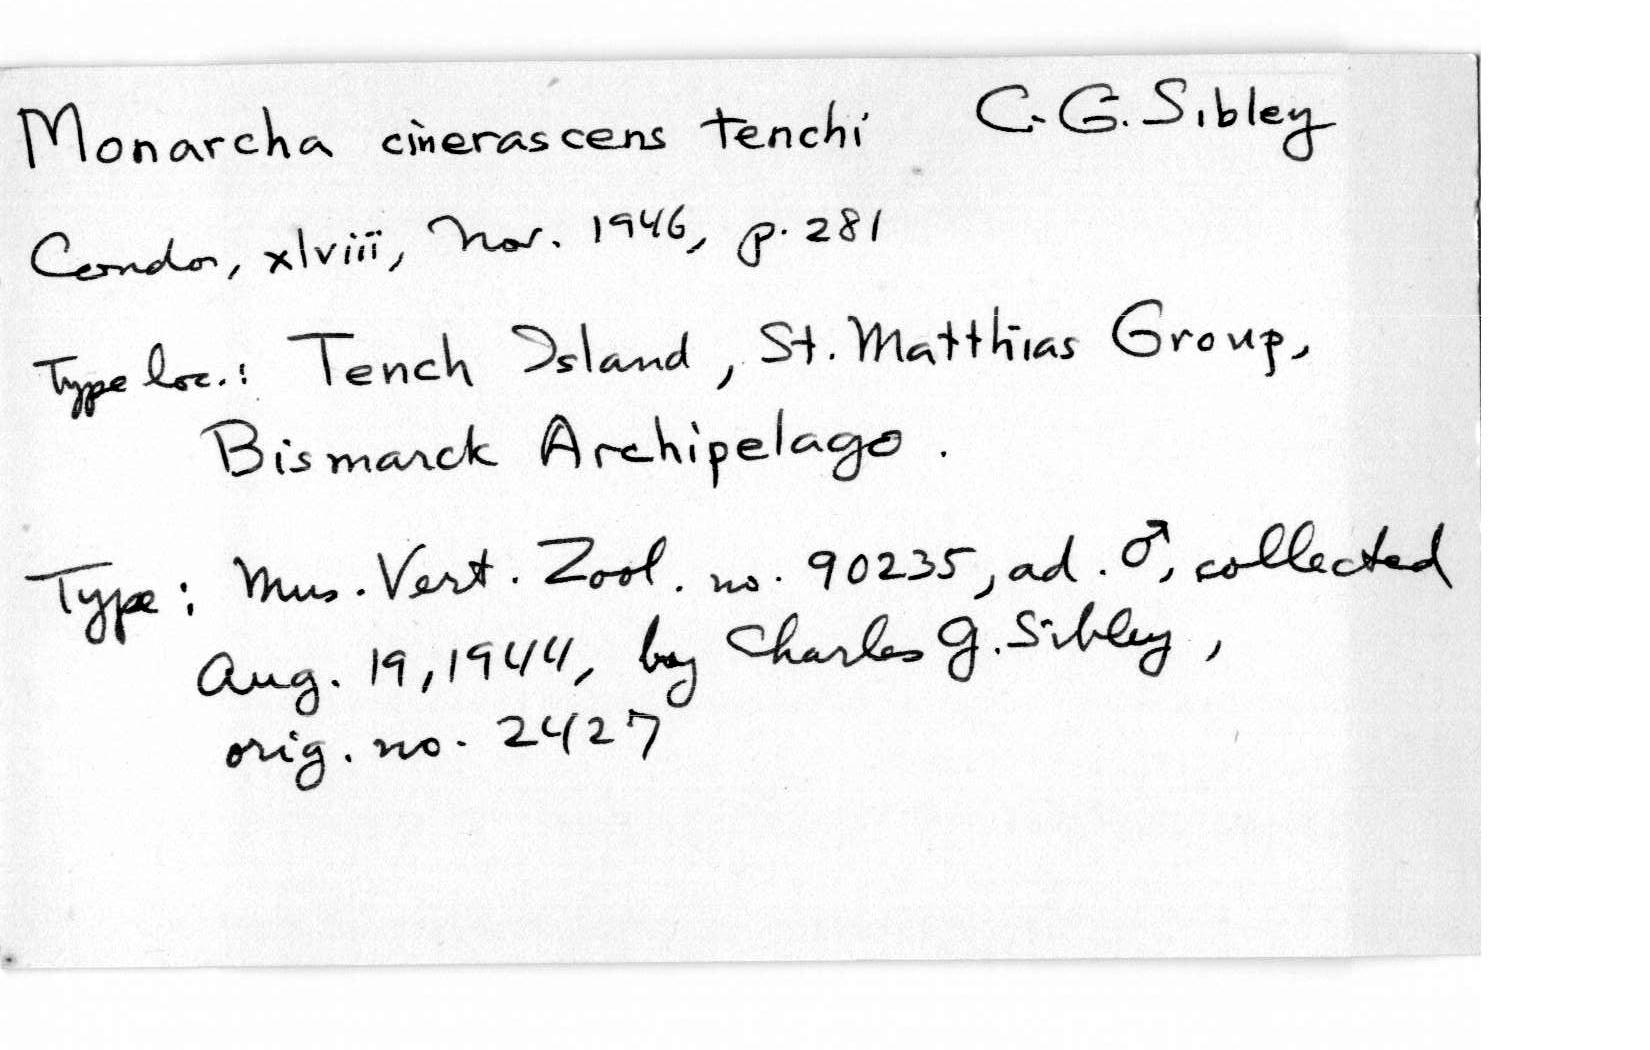 Monarcha cinerascens tenchi C.G. Sibley
Condor, xlviii, Nov. 1946, p. 281
Type loc.: Tench Island, St. Matthias Group,
Bismarck Archipelago.
Type: Mus. Vert. Zool. no. 90235, ad. ♂, collected
Aug. 19, 1944, by Charles G. Sibley,
orig. no. 2427